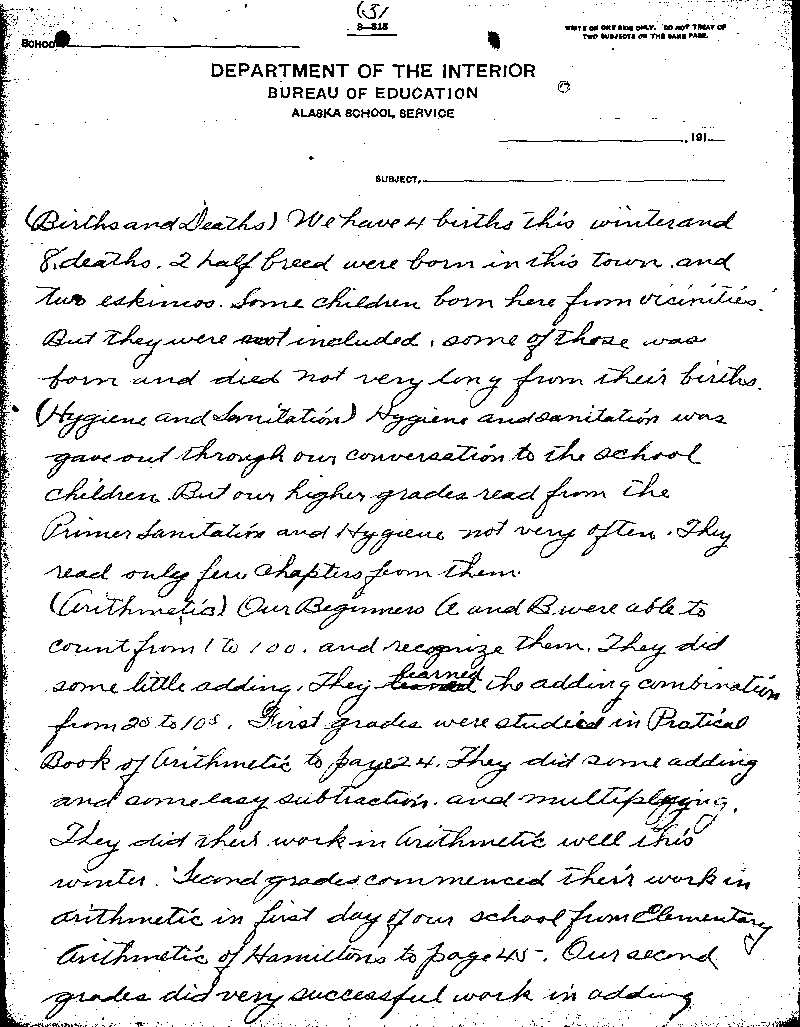 (3)
8—315
WRITE ON ONE SIDE ONLY. DO NOT TREAT OF
TWO SUBJECTS ON THE SAME PAGE.
SCHOOL
DEPARTMENT OF THE INTERIOR
BUREAU OF EDUCATION
ALASKA SCHOOL SERVICE
, 191
SUBJECT,
(Births and Deaths) We have 4 births this winter and
8 deaths. 2 half breed were born in this town and
two eskimos. Some children born here from vicinities.
But they were not included, some of those was
born and died not very long from their births.
(Hygiene and Sanitation) Hygiene and sanitation was
gave out through our conversation to the school
children. But our higher grades read from the
Primer Sanitation and Hygiene not very often. They
read only few chapters from them.
(Arithmetic) Our Beginners A and B were able to
count from 1 to 100. and recognize them. They did
some little adding. They learned the adding combination
from 2s to 10s. First grades were studied in Pratical
Book of Arithmetic to page 24. They did some adding
and some easy subtraction. and multiplying.
They did their work in Arithmetic well this
winter. Second grades commenced their work in
arithmetic in first day of our school from Elementary
Arithmetic of Hamiltons to page 45. Our second
grades did very successful work in adding